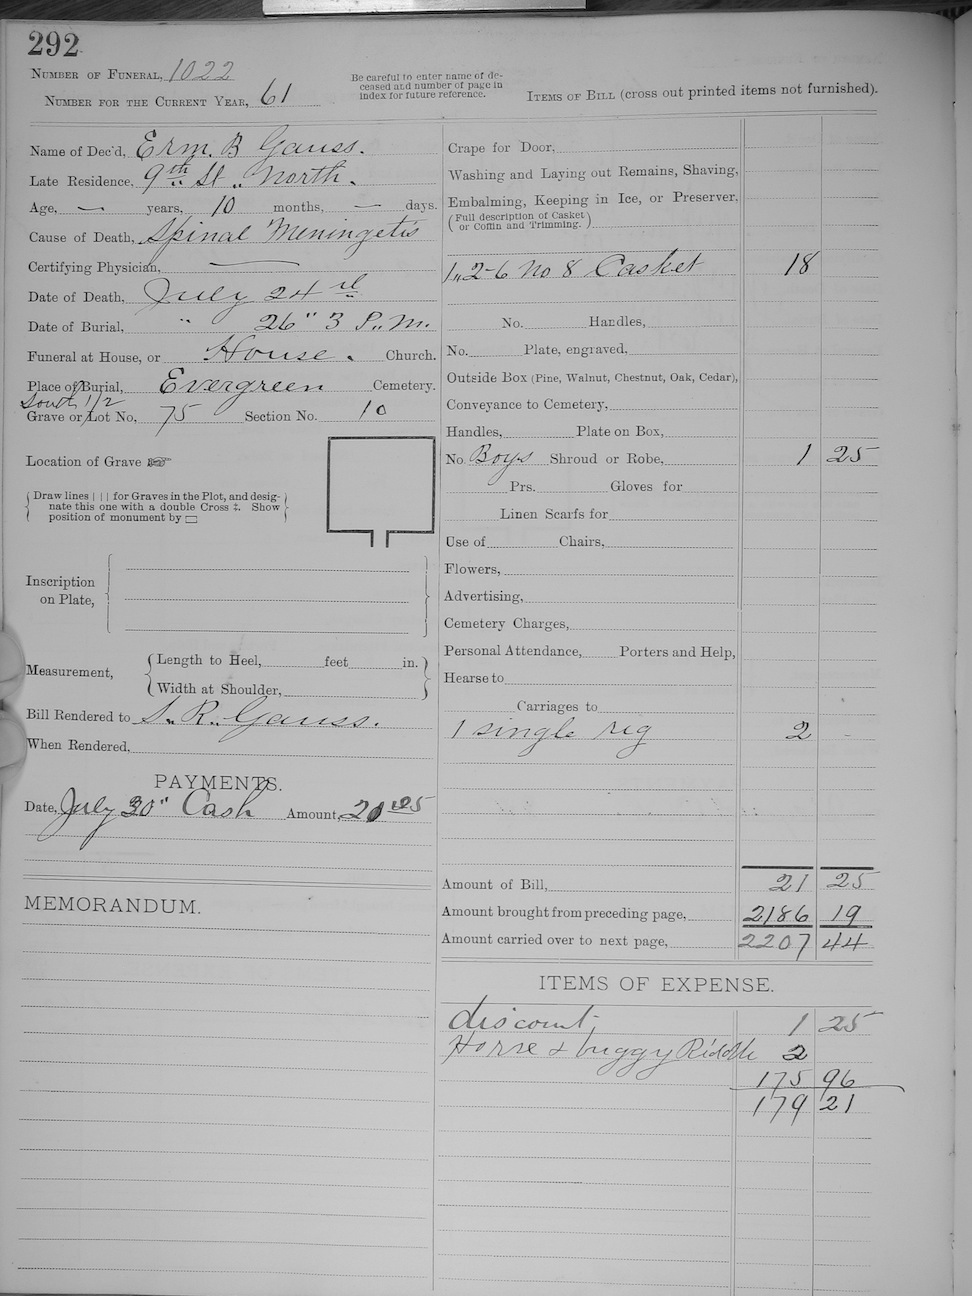 292
Number of Funeral, 1022
Number for the Current Year, 61
Be careful to enter name of de-
ceased and number of page in
index for future reference.
Items of Bill (cross out printed items not furnished).
Name of Dec'd, Erm. B Gauss.
Late Residence, 9th St. North.
Age, — years, 10 months, — days.
Cause of Death, Spinal Meningetis
Certifying Physician, —
Date of Death, July 24
Date of Burial, " 26" 3 P. M.
Funeral at House, or House. Church.
Place of Burial, Evergreen Cemetery.
South 1/2
Grave or Lot No, 75 Section No. 10
Location of Grave ☞
Draw lines | | | for Graves in the Plot, and desig-
nate this one with a double Cross ‡. Show
position of monument by ▭
Inscription
on Plate,
Measurement,
Length to Heel, feet in.
Width at Shoulder,
Bill Rendered to S. R. Gauss.
When Rendered,
PAYMENTS.
Date, July 30" Cash Amount, 20
MEMORANDUM.
Crape for Door,
Washing and Laying out Remains, Shaving,
Embalming, Keeping in Ice, or Preserver,
(Full description of Casket
or Coffin and Trimming.)
1, 2-6 No 8 Casket 18
No. Handles,
No. Plate, engraved,
Outside Box (Pine, Walnut, Chestnut, Oak, Cedar),
Conveyance to Cemetery,
Handles, Plate on Box,
No. Boys Shroud or Robe, 1 25
Prs. Gloves for
Linen Scarfs for
Use of Chairs,
Flowers,
Advertising,
Cemetery Charges,
Personal Attendance, Porters and Help,
Hearse to
Carriages to
1 single rig 2 -
Amount of Bill, 21 25
Amount brought from preceding page, 2186 19
Amount carried over to next page, 2207 44
ITEMS OF EXPENSE.
discount, 1 25
Horse & buggy Riddle 2
175 96
179 21